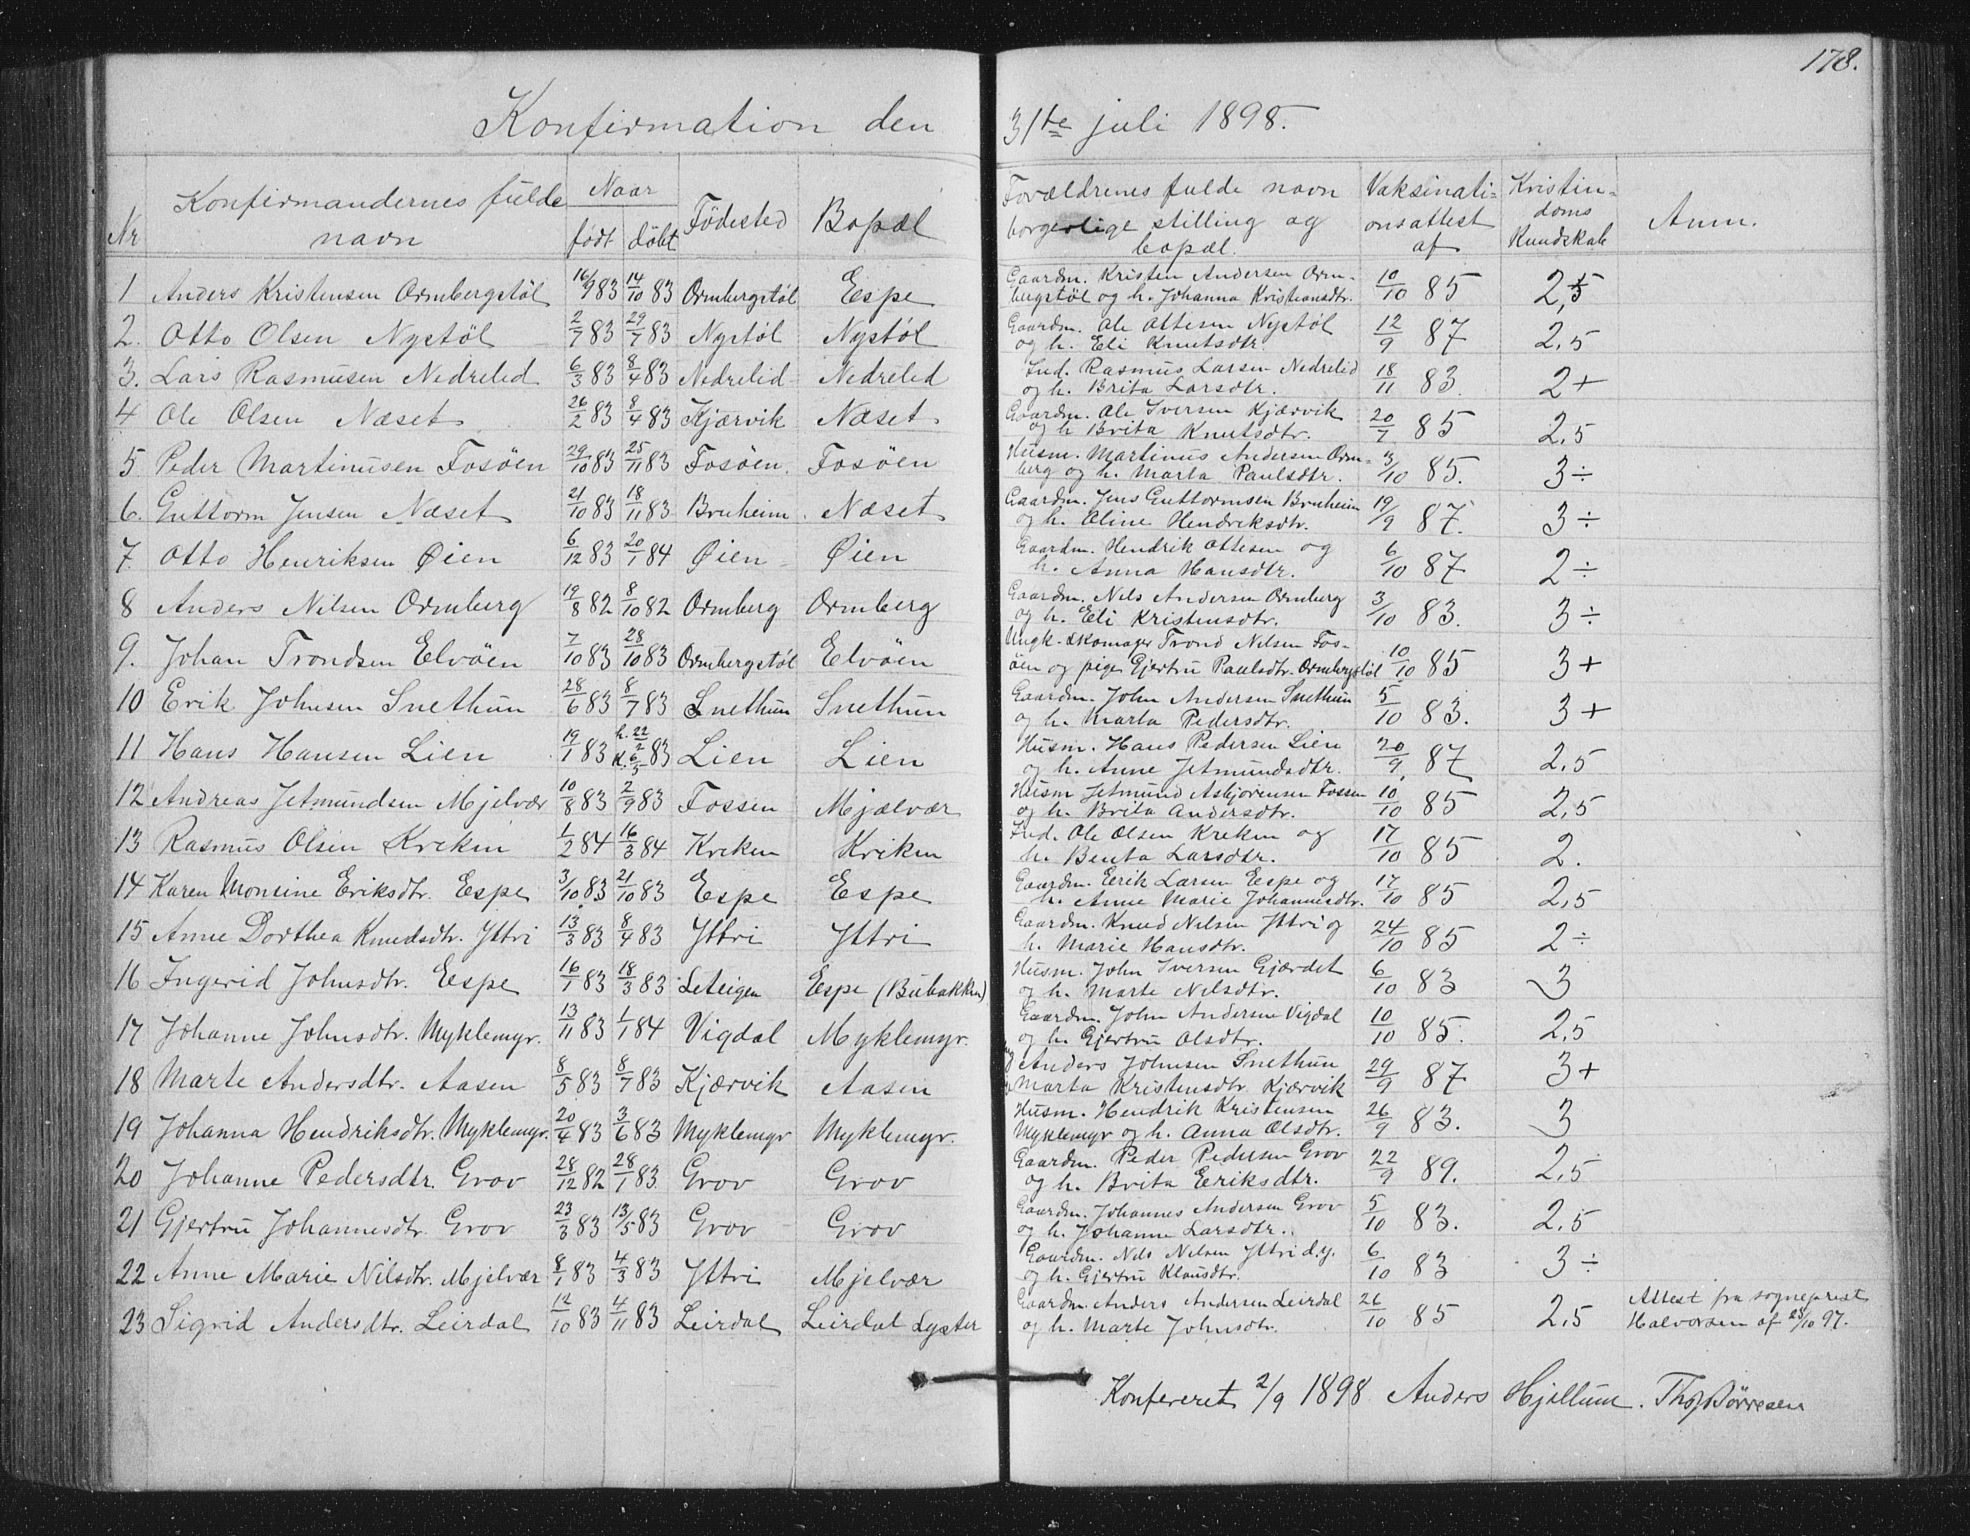 178.
Konfirmation den 31te juli 1898.
Nr Konfirmandernes fulde navn Naar født døbt Fødested Bopæl Forældrenes fulde navn borgerlige stilling og bopæl. Vaksinationsattest af Kristindoms Kundskab Anm.
1 Anders Kristensen Ormbergstøl 16/9 83 14/10 83 Ormbergstøl Espe Gaardm. Kristen Andersen Ormbergstøl og h. Johanna Kristiansdtr. 10/10 85 2,5
2. Otto Olsen Nystøl 2/7 83 29/7 83 Nystøl Nystøl Gaardm. Ole Ottesen Nystøl og h. Eli Knutsdtr. 12/9 87 2,5
3. Lars Rasmusen Nedrelid 6/3 83 8/4 83 Nedrelid Nedrelid Ind. Rasmus Larsen Nedrelid og h. Brita Larsdtr. 18/11 83. 2+
4 Ole Olsen Næset 26/2 83 8/4 83 Kjærvik Næset. Gaardm. Ole Iversen Kjærvik og h Brita Knutsdtr. 20/7 85 2,5
5 Peder Martinusen Fosöen 29/10 83 25/11 83 Fosöen. Fosöen Husm. Martinus Andersen Ormberg og h. Marta Paulsdtr. 3/10 85. 3÷
6. Guttorm Jensen Næset 21/10 83 18/11 83 Bruheim. Næset Gaardm. Jens Guttormsen Bruheim og h. Oline Hendriksdtr. 19/9 87. 3÷
7. Otto Henriksen Øien 6/12 83 20/1 84 Øien Øien Gaardm. Hendrik Ottesen og h. Anna Hansdtr. 6/10 87 2÷
8 Anders Nilsen Ormberg 19/8 82 8/10 82 Ormberg Ormberg Gaardm. Nels Andersen Ormberg og h. Eli Kristensdtr. 3/10 83. 3÷
9. Johan Trondsen Elvöen 7/10 83 28/10 83 Ormbergstøl Elvöen Ungk. skomager Trond Nilsen Fosöen og pige Gjertru Paulsdtr. Ormbergstøl 10/10 85 3+
10 Erik Johnsen Snethun 28/6 83 8/7 83 Snethun Snethun Gaardm. John Andersen Snethun og h. Marta Pedersdtr. 5/10 83. 3+
11 Hans Hansen Lien 19/1 83 h. 22/2 k. 6/5 83 Lien Lien Husm. Hans Pedersen Lien og h. Anne Jetmundsdtr. 20/9 87 2,5
12 Andreas Jetmundsen Mjelvær 10/8 83 2/9 83 Fossen Mjælvær Husm Jetmund Asbjörensen Fossen og h. Brita Andersdtr. 10/10 85 2,5
13 Rasmus Olsen Kreken 1/2 84 16/3 84 Kreken Kreken Ind. Ole Olsen Kreken og h. Benta Larsdtr. 17/10 85 2.
14 Karen Monsine Eriksdtr. Espe 3/10 83 21/10 83 Espe Espe Gaardm. Eerik Larsen Espe og h. Anne Marie Johannesdtr. 17/10 85 2,5
15 Anne Dorthea Knudsdtr. Yttri 13/3 83 8/4 83 Yttri Yttri Gaardm. Knud Nilsen Yttri og h. Marie Hansdtr. 24/10 85 2÷
16 Ingerid Johnsdtr. Espe 16/1 83 18/3 83 Leteigen Espe (Bubakken) Husm. John Iversen Gjærdet og h. Marte Nilsdtr. 6/10 83 3
17 Johanne Johnsdtr. Myklemyr. 13/11 83 1/1 84 Vigdal Myklemyr. Gaardm. John Andersen Vigdal og h. Gjertru Olsdtr. 10/10 85. 2,5
18 Marte Andersdtr. Aasen 8/5 83 8/7 83 Kjærvik Aasen Anders Johnsen Snethun Marta Kristensdtr. Kjærvik 29/9 87 3+
19 Johanna Hendriksdtr. Myklemyr. 20/4 83 3/6 83 Myklemyr Myklemyr. Husm. Hendrik Kristensen Myklemyr og h. Anna Olsdtr. 26/9 83. 3
20 Johanne Pedersdtr. Grov 28/12 82 28/1 83. Grov Grov Gaardm. Peder Pedersen Grov og h. Brita Eeriksdtr. 22/9 89. 2,5
21 Gjertru Johannesdtr. Grov 23/3 83 13/5 83 Grov Grov Gaardm. Johannes Andersen Grov og h. Johanne Larsdtr. 5/10 83. 2,5
22 Anne Marie Nilsdtr. Mjelvær 8/1 83 4/3 83 Yttri Mjelvær Gaardm. Nels Nilsen Yttri d.y. og h. Gjertru Klausdtr. 6/10 83 3÷
23 Sigrid Andersdtr. Leirdal 12/10 83 4/11 83 Leirdal Leirdal Lyster Gaardm. Anders Andersen Leirdal og h. Marte Johnsdtr. 26/10 85 2,5 Attest fra sogneprest Halvorsen af 28/10 97.
Konfereret 2/9 1898 Anders Hjellum. Ths. Børresen